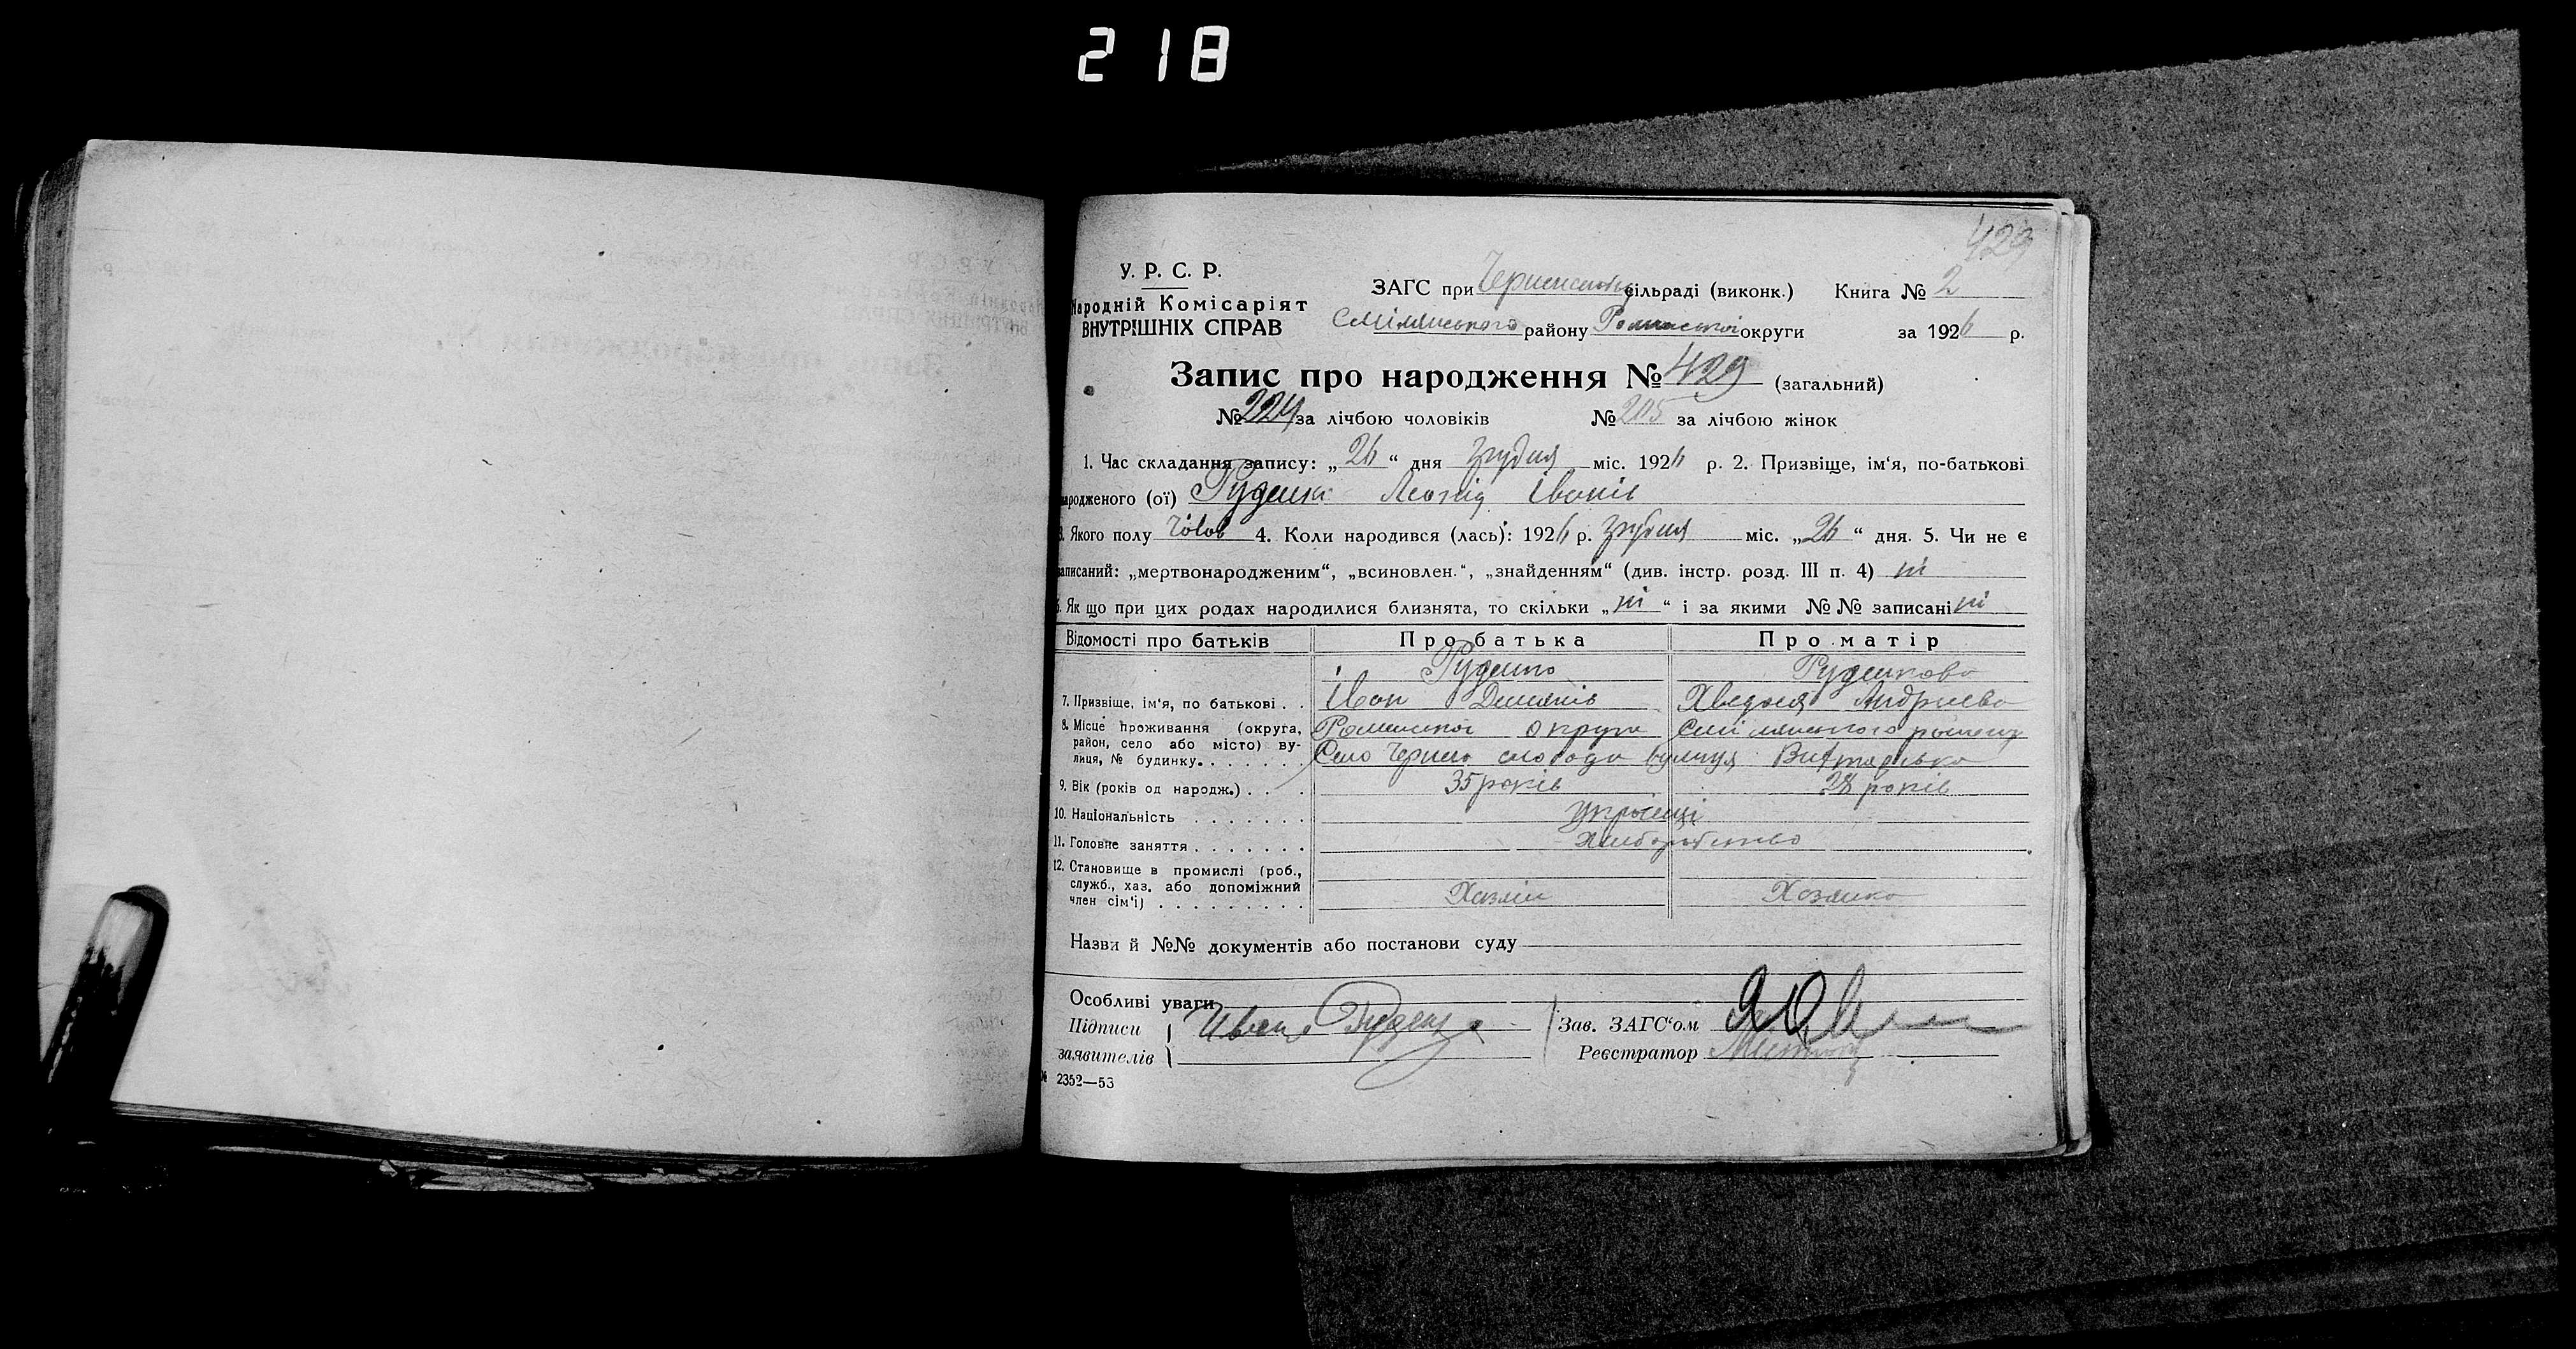 218
429
У. Р. С. Р.
Народній Комісаріят
ВНУТРІШНІХ СПРАВ
ЗАГС при сільраді (виконк.) Книга № 2
Смілянського району Роменської округи за 1926 р.
Запис про народження № 429 (загальний)
№ 224 за лічбою чоловіків № 205 за лічбою жінок
1. Час складання запису: „26“ дня грудня міс. 1926 р. 2. Призвіще, ім‘я, по-батькові
народженого (ої) Руденко Леонід Іванів
3. Якого полу Чолов 4. Коли народився (лась): 1926 р. грудня міс. „26“ дня. 5. Чи не є
записаний: „мертвонародженим“, „всиновлен.“, „знайденням“ (див. інстр. розд. III п. 4) ні
6. Як що при цих родах народилися близнята, то скільки „ні“ і за якими №№ записані ні
Відомості про батьків Про батька Про матір
Руденко Руденкова
7. Призвіще, ім‘я, по батькові . . Іван Демянів Хведося Андриєва
8. Місце проживання (округа, район, село або місто) вулиця, № будинку. . . . . . . Роменської округи Смілянського району
Село Черно слобода вулиця
9. Вік (років од народж.) . . . 35 років 28 років
10. Національність . . . . . . . українці
11. Головне заняття . . . . . . . Хліборобство
12. Становище в промислі (роб., служб., хаз. або допоміжний член сім‘ї) . . . . . . . . . Хазяін Хозяйка
Назви й №№ документів або постанови суду
Особливі уваги
Підписи заявителів Иван Руденко
Зав. ЗАГС‘ом
Реєстратор
№ 2352—53